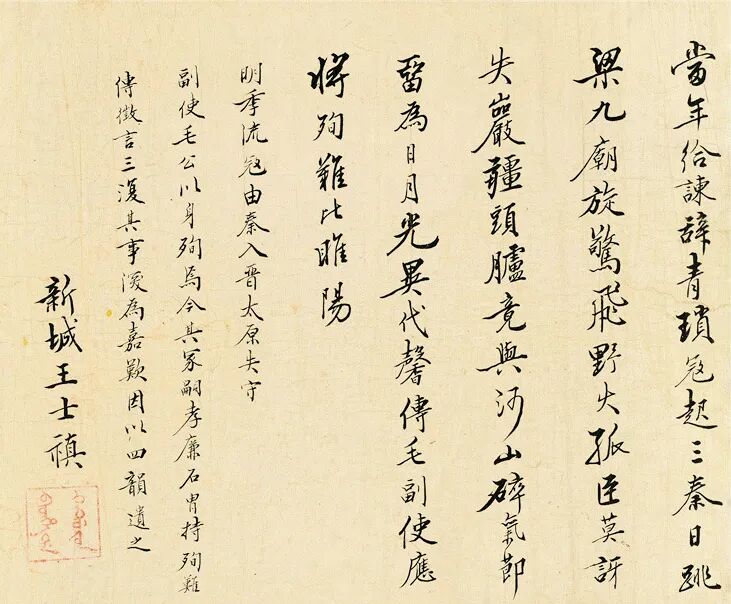 當年給諫辭青瑣寇起三秦日跳
梁九廟旋驚飛野火孤臣莫訝
失巖疆頭臚竟與河山碎氣節
留為日月光異代馨傳毛副使應
將殉難比睢陽
明季流寇由秦入晉太原失守
副使毛公以身殉焉今其冢嗣孝廉石胄持殉難
傳徵言三復其事深為嘉歎因以四韻遺之
新城王士禛